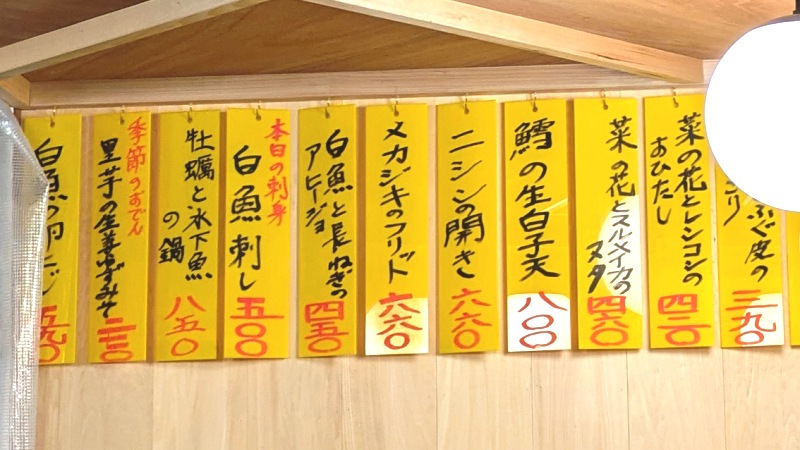 ふぐ皮の
三九〇
菜の花とレンコンの
おひたし
四二〇
菜の花とスルメイカの
ヌタ
四六〇
鱈の生白子天
八〇〇
ニシンの開き
六六〇
メカジキのフリット
六六〇
白魚と長ねぎの
アヒージョ
四五〇
本日の刺身
白魚刺し
五〇〇
牡蠣と氷下魚
の鍋
八五〇
季節のおでん
里芋の生姜
白魚の卵とじ
五九〇